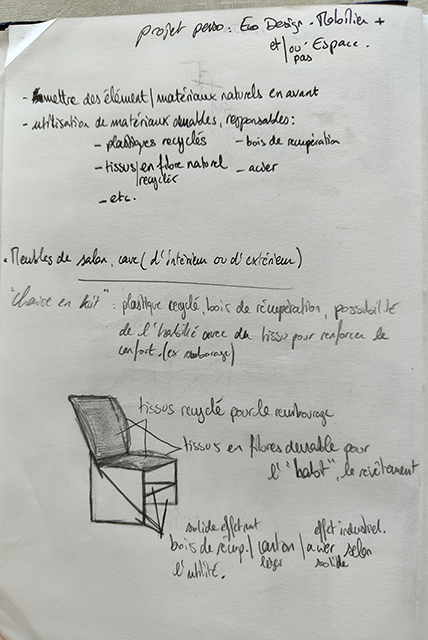 projet perso : Eco Design - Mobilier +
et/ou Espace.
pas
- mettre des élément/matériaux naturels en avant
- utilisation de matériaux durables, responsables :
- plastiques recyclés - bois de récupération
- tissus/en fibre naturel - acier
/recyclér
- etc.
• Meubles de salon, cave (d'intérieur ou d'extérieur)
"chaise en kit" : plastique recyclé, bois de récupération, possibilité
de l'habillé avec du tissu pour renforcer le
confort. (ex rembourage)
tissus recyclé pour le rembourage
tissus en fibres durable pour
l'"habit", le revêtement
solide effet nat effet industriel.
bois de récup./carton/acier selon
l'utilité. léger solide